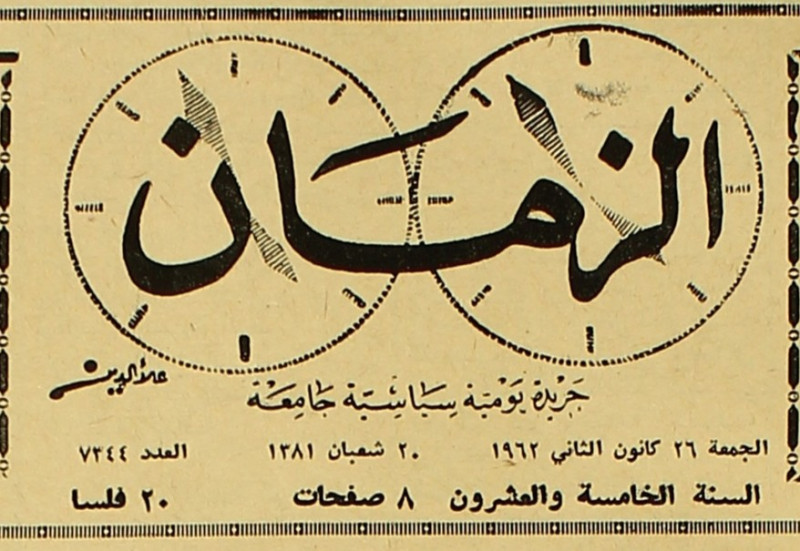 الزمان
علاءالدين
جريدة يومية سياسية جامعة
الجمعة ٢٦ كانون الثاني ١٩٦٢ ٢٠ شعبان ١٣٨١ العدد ٧٣٤٤
السنة الخامسة والعشرون ٨ صفحات ٢٠ فلسا